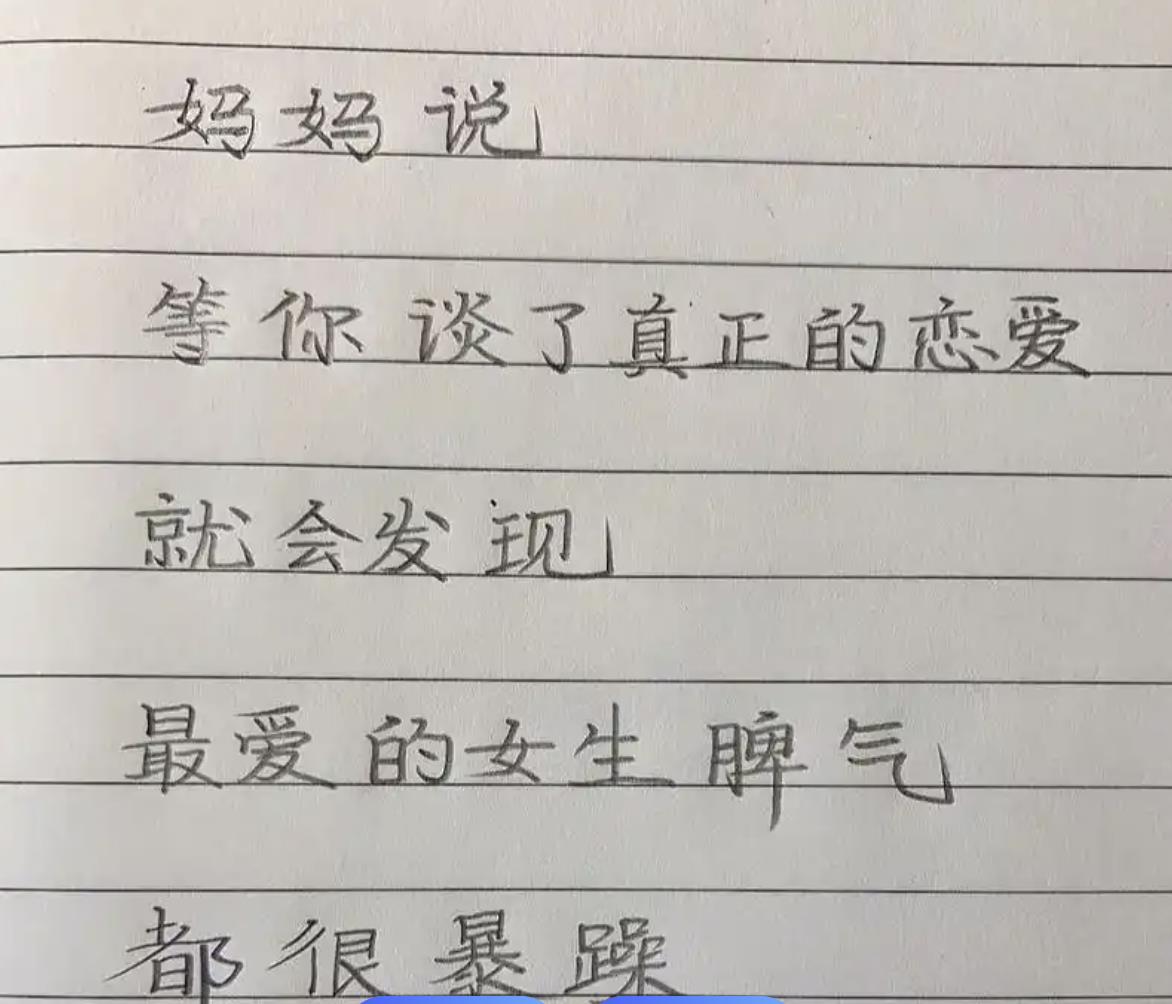 妈妈说
等你谈了真正的恋爱
就会发现
最爱的女生脾气
都很暴躁